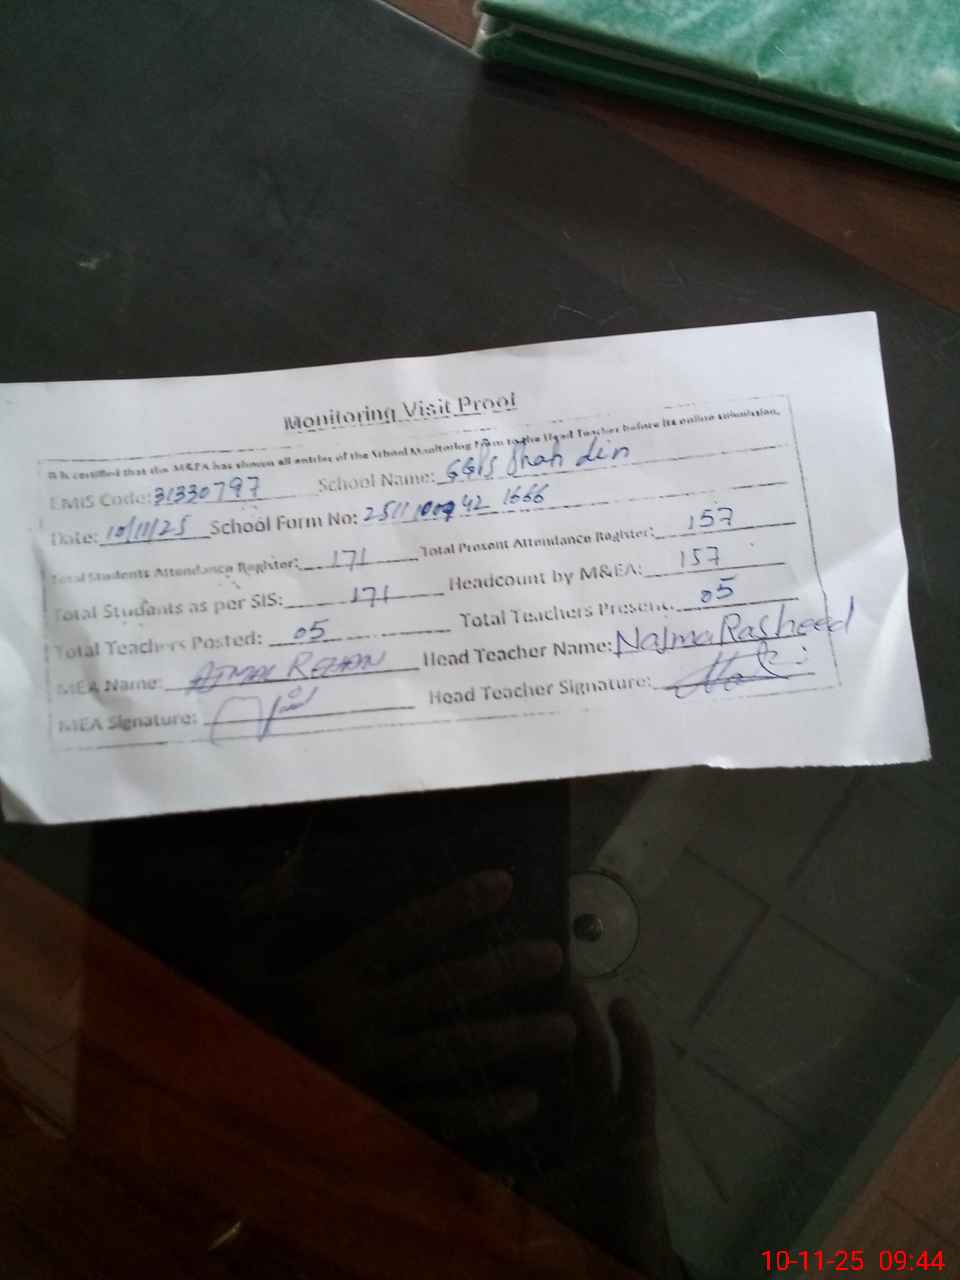 Monitoring Visit Proof
It is certified that the M&EA has shown all entries of the School Monitoring Form to the Head Teacher before its online submission.
EMIS Code: 31330797 School Name: GGPS Shah din
Date: 10/11/25 School Form No: 2511 1666
Total Students Attendance Register: 171 Total Present Attendance Register: 157
Total Students as per SIS: 171 Headcount by M&EA: 157
Total Teachers Posted: 05 Total Teachers Present: 05
MEA Name: AJMAL REHAN Head Teacher Name: Najma Rasheed
MEA Signature: Head Teacher Signature:
10-11-25 09:44